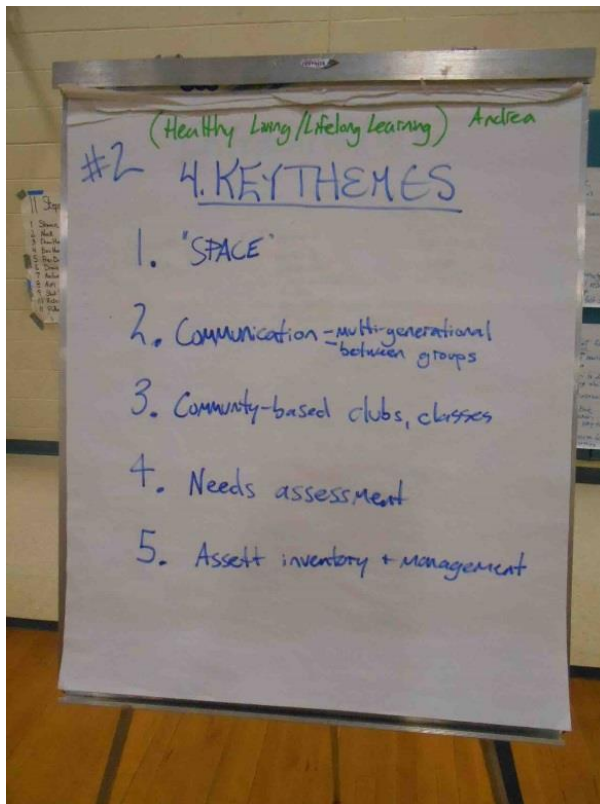 (Healthy Living/Lifelong Learning) Andrea
#2
4. KEY THEMES
1. "SPACE"
2. Communication - multi-generational
- between groups
3. Communty-based clubs, classes
4. Needs assessment
5. Assett inventory + management